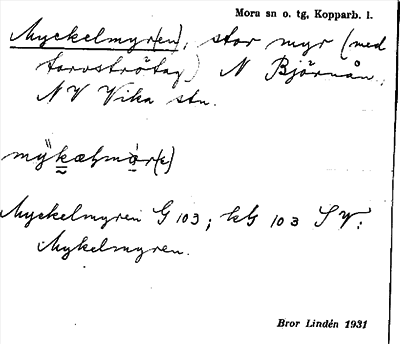 Mora sn o. tg, Kopparb. l.
Myckelmyr(en), stor myr (med
torvströtag) N Björnån,
NV Vika stn.
Myckelmyren G 103; kG 103 SV:
Mykelmyren.
Bror Lindén 1931